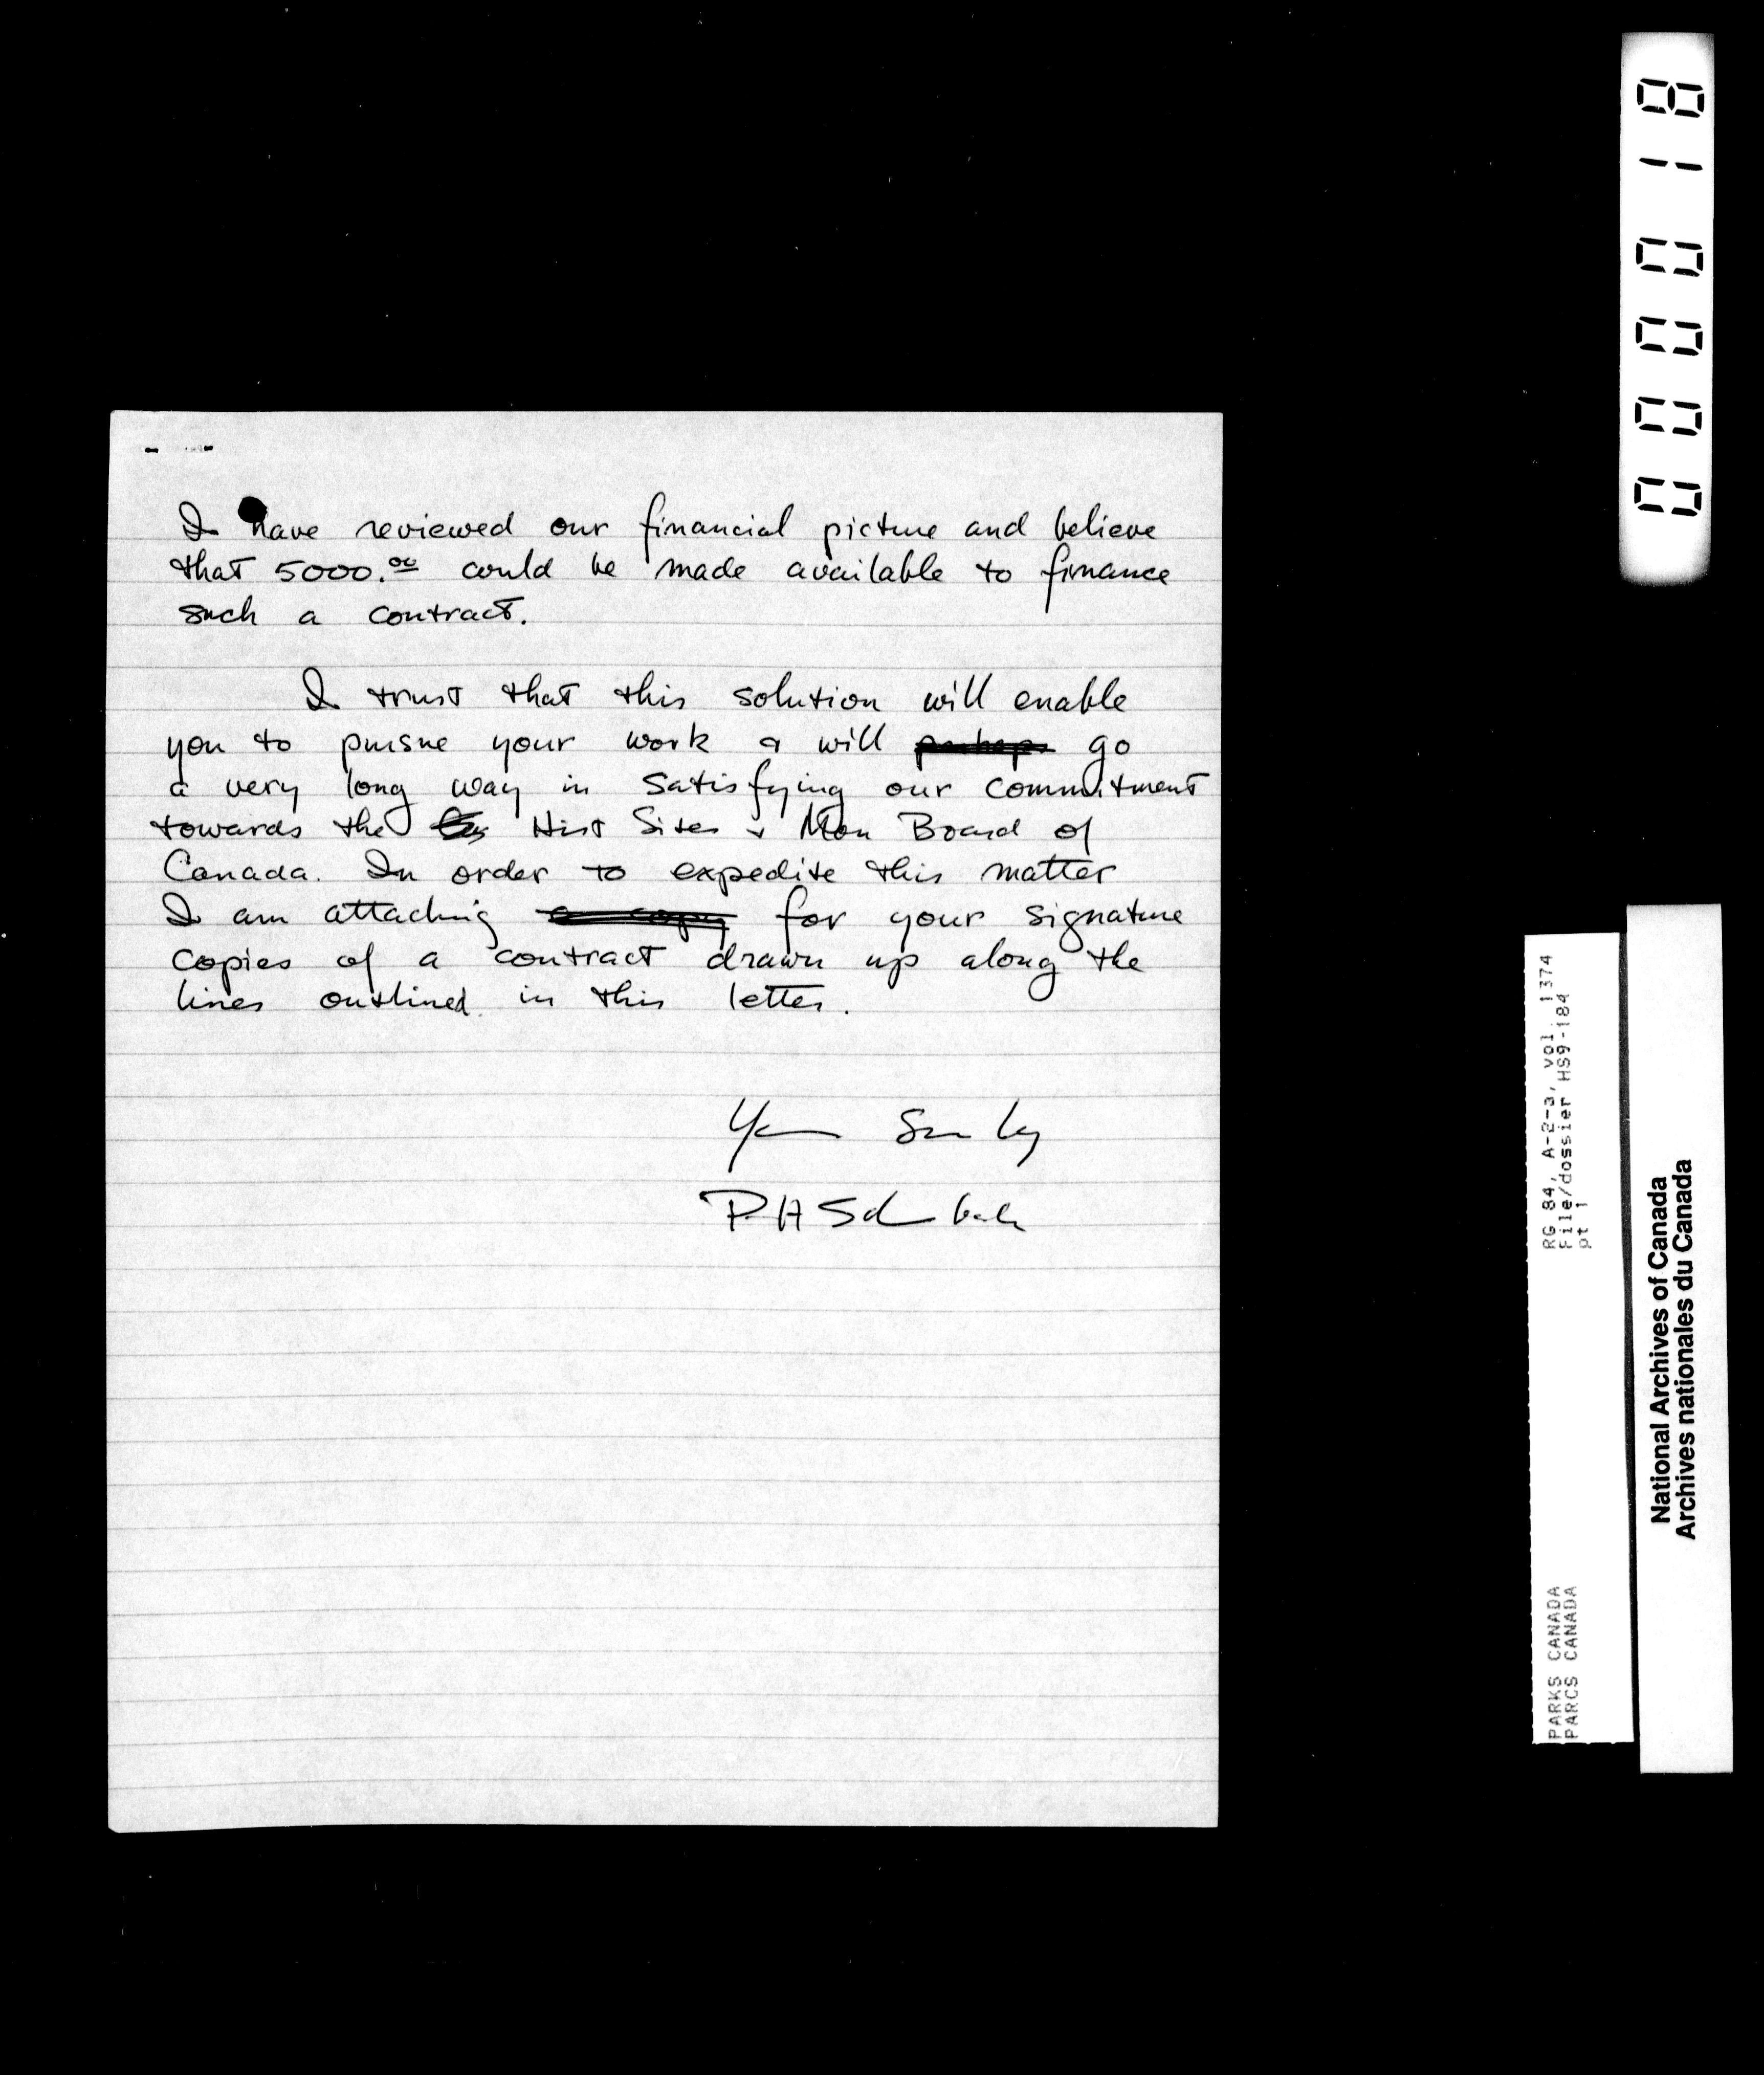 I have reviewed our financial picture and believe
that 5000.00 could be made available to finance
such a contract.
I trust that this solution will enable
you to pursue your work & will perhaps go
a very long way in satisfying our commitment
towards the Hist Sites & Mon Board of
Canada. In order to expedite this matter
I am attaching a copy for your signature
copies of a contract drawn up along the
lines outlined in this letter.
Yours Sincerely
PH
000018
RG 84, A-2-3, vol. 1374
File/dossier HS9-184
pt 1
PARKS CANADA
PARCS CANADA
National Archives of Canada
Archives nationales du Canada